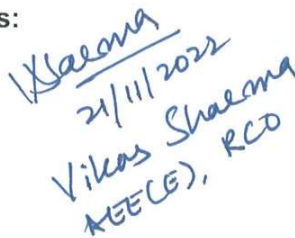 s:
VSharma
21/11/2022
Vikas Sharma
AEE(E), RCO